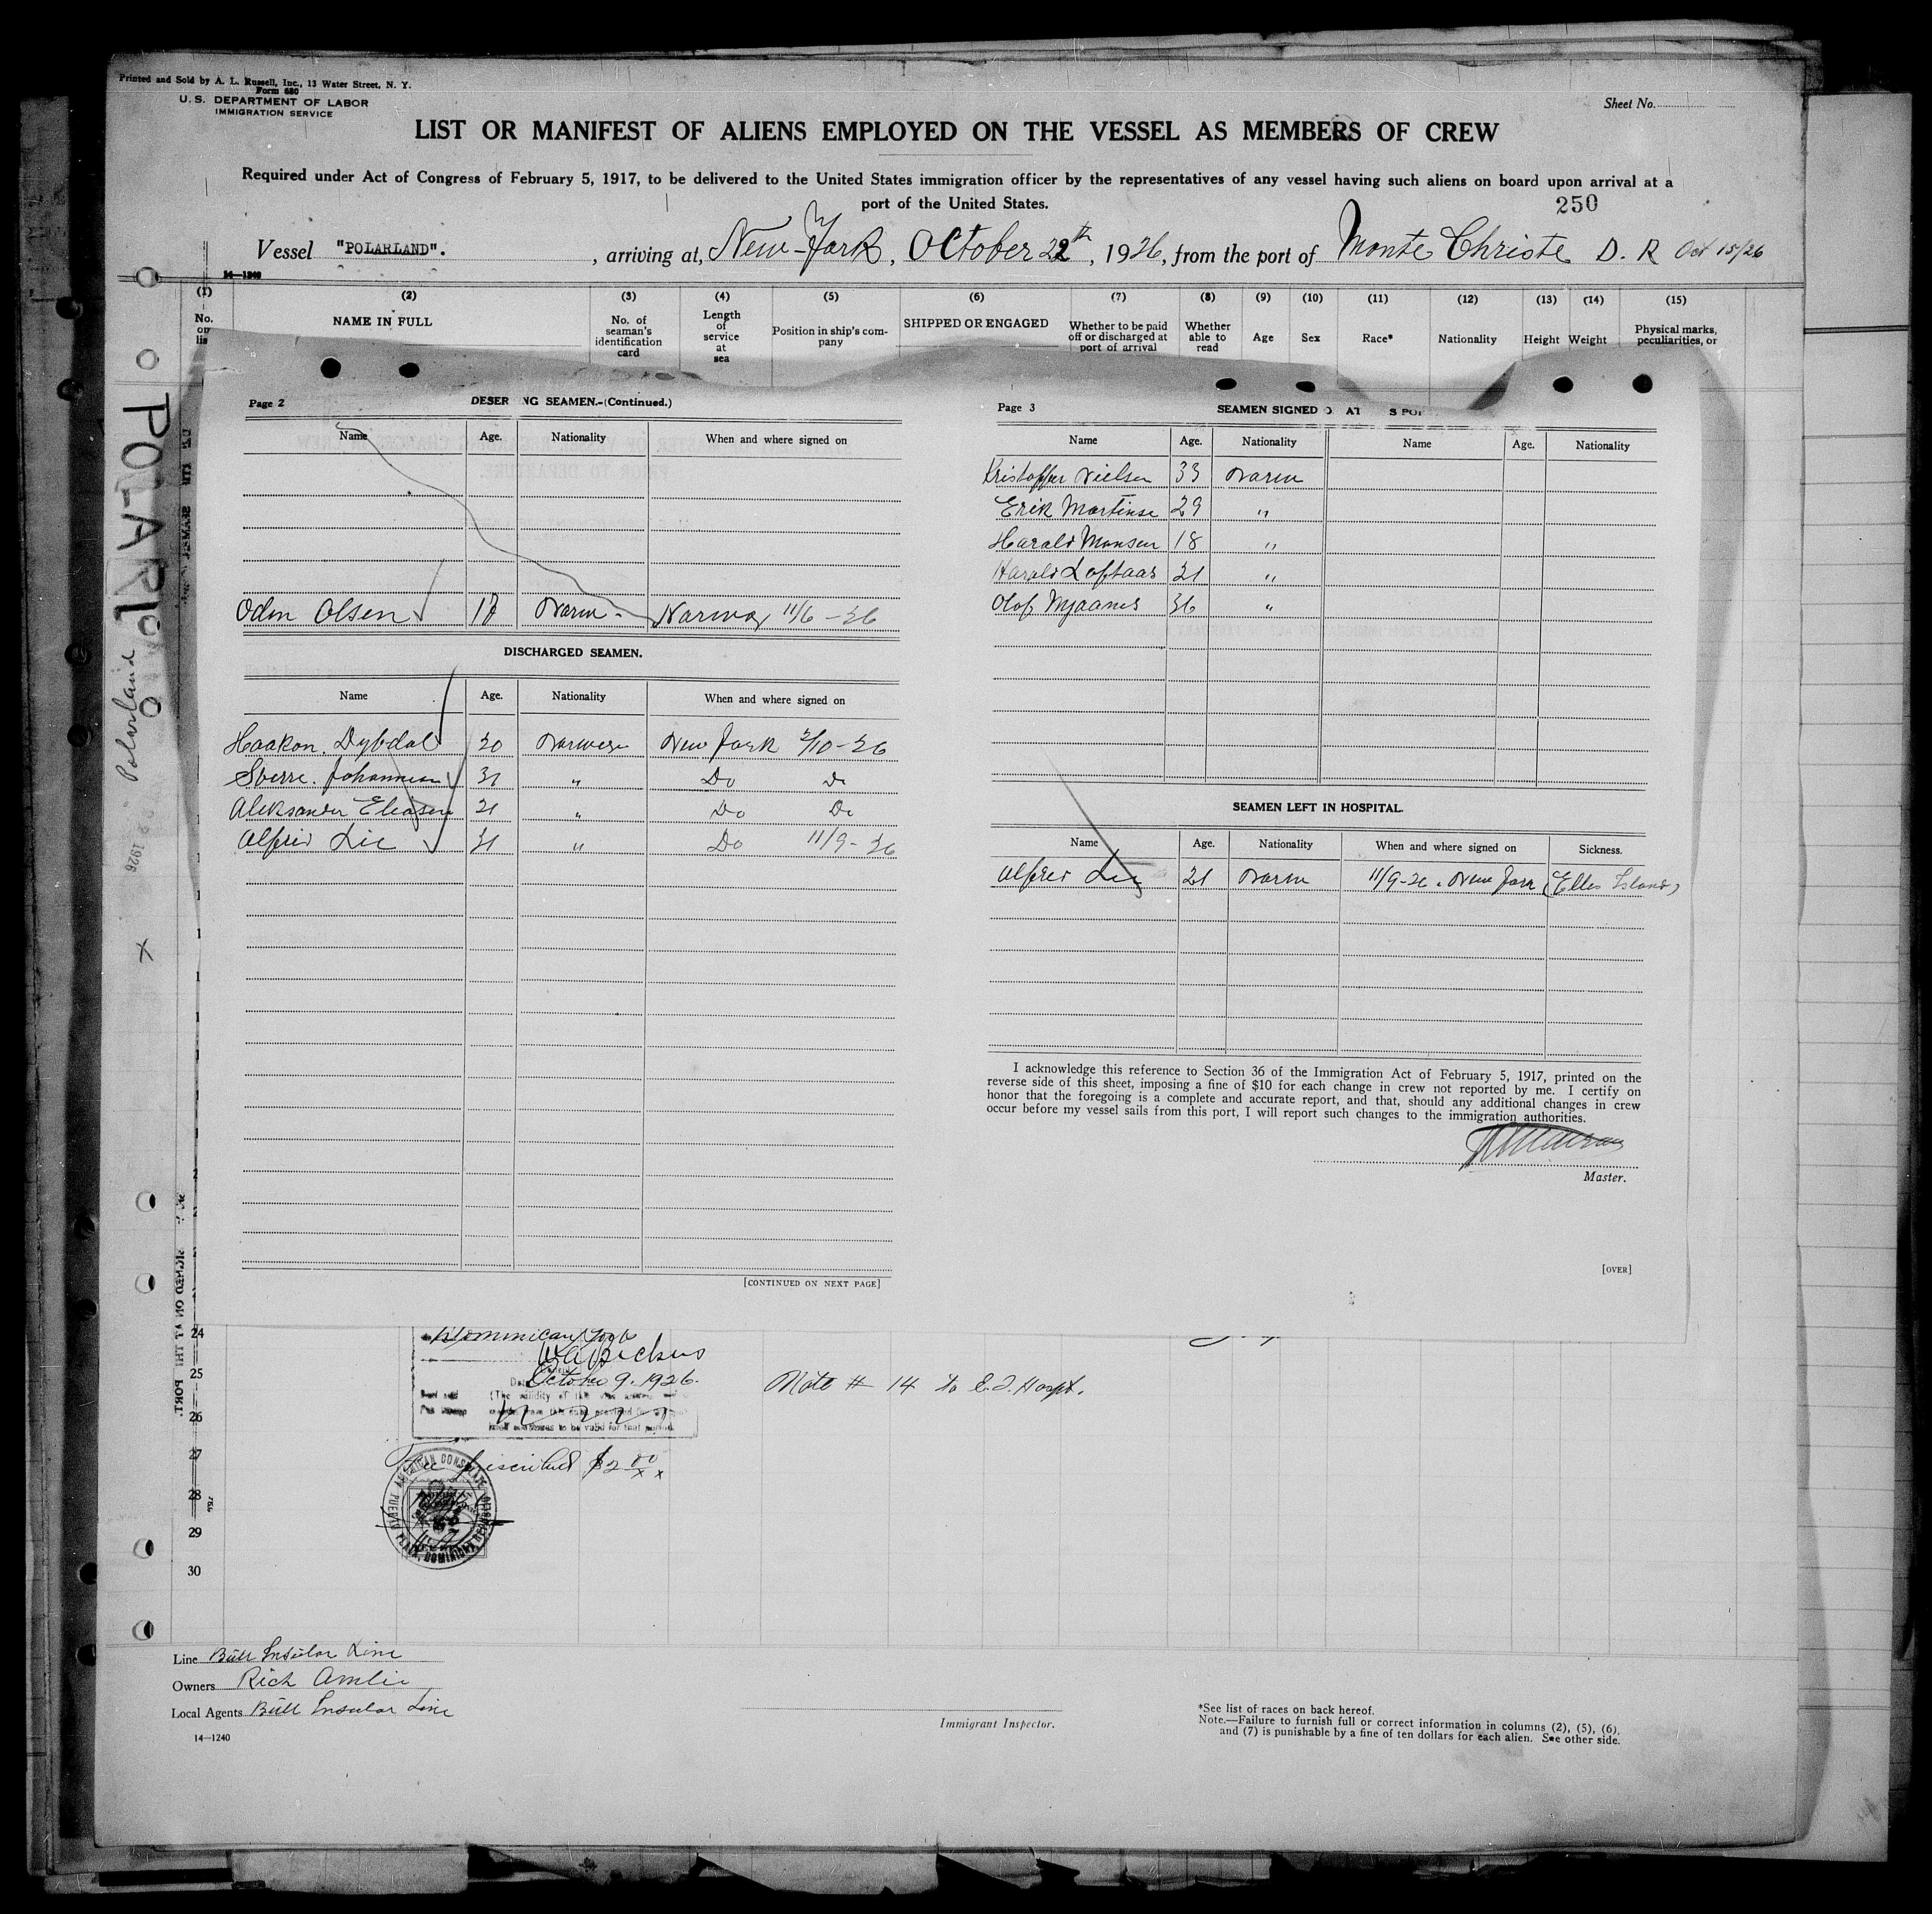 Printed and Sold by A. L. Russell, Inc., 13 Water Street, N. Y.
Form 680
U. S. DEPARTMENT OF LABOR
IMMIGRATION SERVICE
Sheet No.
LIST OR MANIFEST OF ALIENS EMPLOYED ON THE VESSEL AS MEMBERS OF CREW
Required under Act of Congress of February 5, 1917, to be delivered to the United States immigration officer by the representatives of any vessel having such aliens on board upon arrival at a
port of the United States.
250
Vessel "POLARLAND". , arriving at, New-York, October 22th, 1926, from the port of Monte Christe D. R Oct 15/26
14—1240
(1) (2) (3) (4) (5) (6) (7) (8) (9) (10) (11) (12) (13) (14) (15)
No. on lis NAME IN FULL No. of seaman's identification card Length of service at sea Position in ship's company SHIPPED OR ENGAGED Whether to be paid off or discharged at port of arrival Whether able to read Age Sex Race* Nationality Height Weight Physical marks, peculiarities, or
Page 2 DESER NG SEAMEN.-(Continued.)
Name Age. Nationality When and where signed on
Odin Olsen 18 Norw- Norway 11/6-26
DISCHARGED SEAMEN.
Name Age. Nationality When and where signed on
Haakon. Dybdal 20 Norwega New York 2/10-26
Sverre. Johannesen 31 " Do Do
Aleksander Eliasen 21 " Do Do
Alfred Lie 21 " Do 11/9-26
[CONTINUED ON NEXT PAGE]
Page 3 SEAMEN SIGNED O AT S POR
Name Age. Nationality Name Age. Nationality
Kristoffer Nielsen 33 Norw
Erik Martinse 29 "
Harald Monsen 18 "
Harald Loftaas 21 "
Olof 36 "
SEAMEN LEFT IN HOSPITAL.
Name Age. Nationality When and where signed on Sickness.
Alfred Lie 21 Norw 11/9-26. New York (Elles Island)
I acknowledge this reference to Section 36 of the Immigration Act of February 5, 1917, printed on the
reverse side of this sheet, imposing a fine of $10 for each change in crew not reported by me. I certify on
honor that the foregoing is a complete and accurate report, and that, should any additional changes in crew
occur before my vessel sails from this port, I will report such changes to the immigration authorities.
Master.
[OVER]
POLARLAND
Polarland
1926
24
25
26
27
28
29
30
October 9. 1926.
Note # 14 to E.I. Hospt.
Fee prescribed $2.00
AMERICAN CONSULATE
PUERTO PLATA, DOMINICAN REPUBLIC
Line Bull Insular Line
Owners Rich Amlie
Local Agents Bull Insular Line
14—1240
Immigrant Inspector.
*See list of races on back hereof.
Note.—Failure to furnish full or correct information in columns (2), (5), (6),
and (7) is punishable by a fine of ten dollars for each alien. See other side.